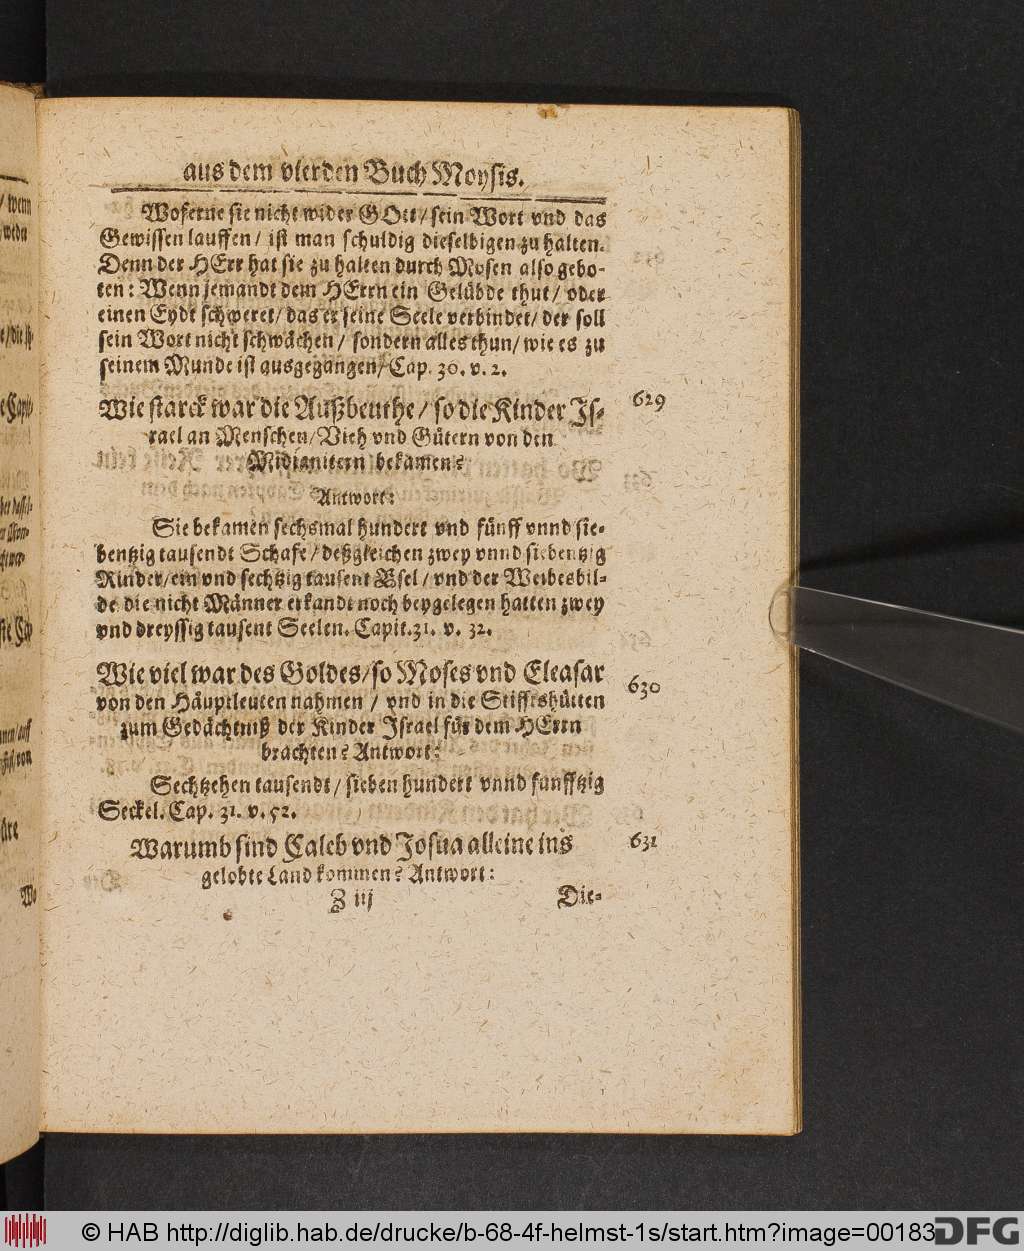 aus dem vierden Buch Moysis.
Woferne sie nicht wider GOtt / sein Wort vnd das
Gewissen lauffen / ist man schuldig dieselbigen zu halten.
Denn der HErr hat sie zu halten durch Mosen also gebo-
ten: Wenn jemandt dem HErrn ein Gelübde thut / oder
einen Eydt schweret / das er seine Seele verbindet / der soll
sein Wort nicht schwächen / sondern alles thun / wie es zu
seinem Munde ist ausgegangen / Cap. 30. v. 2.
Wie starck war die Außbeuthe / so die Kinder Is- 629
rael an Menschen / Vieh vnd Gütern von den
Midianitern bekamen?
Antwort:
Sie bekamen sechsmal hundert vnd fünff vnnd sie-
bentzig tausendt Schafe / deßgleichen zwey vnnd siebentzig
Rinder / ein vnd sechtzig tausent Esel / vnd der Weibesbil-
de die nicht Männer erkandt noch beygelegen hatten zwey
vnd dreyssig tausent Seelen. Capit. 31. v. 32.
Wie viel war des Goldes / so Moses vnd Eleasar 630
von den Häuptleuten nahmen / vnd in die Stifftshütten
zum Gedächtniß der Kinder Israel für dem HErrn
brachten? Antwort:
Sechtzehen tausendt / sieben hundert vnnd funfftzig
Seckel. Cap. 31. v. 52.
Warumb sind Caleb vnd Josua alleine ins 631
gelobte Land kommen? Antwort:
Z iij Die-
© HAB http://diglib.hab.de/drucke/b-68-4f-helmst-1s/start.htm?image=00183
DFG